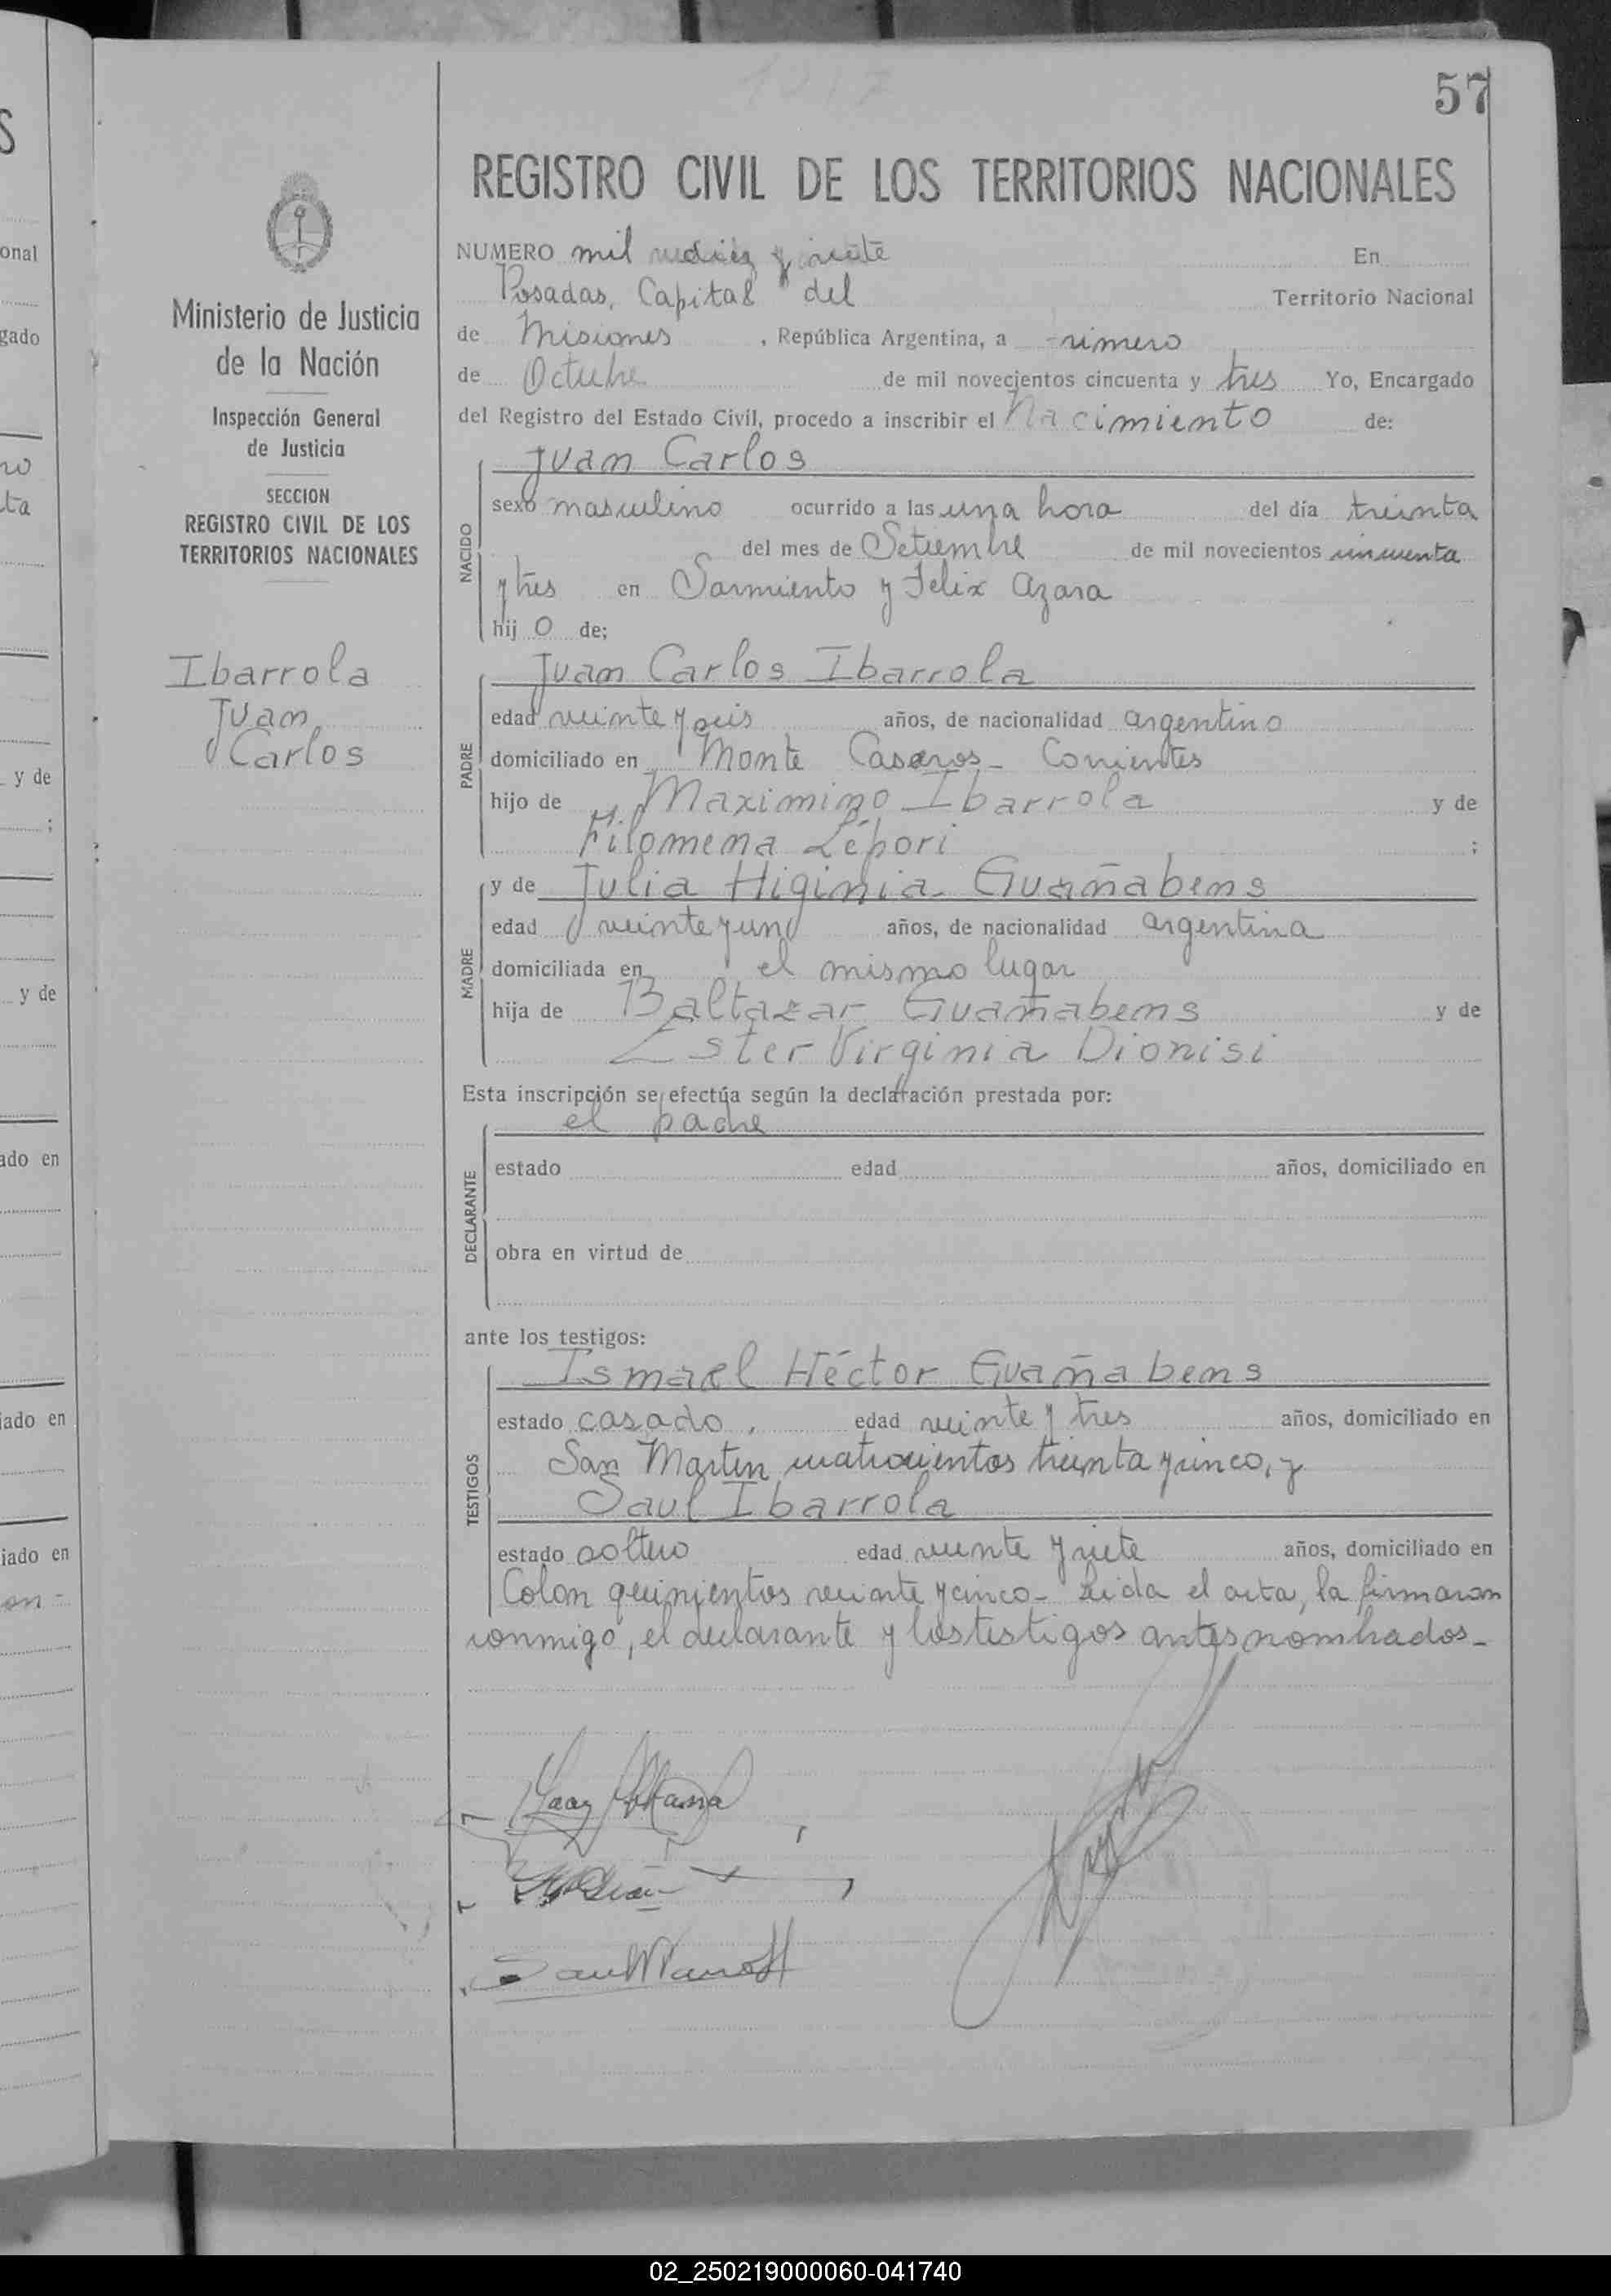 1017
57
REGISTRO CIVIL DE LOS TERRITORIOS NACIONALES
NUMERO mil diez y siete En
Posadas, Capital del Territorio Nacional
de Misiones , República Argentina, a rimero
de Octubre de mil novecientos cincuenta y tres Yo, Encargado
del Registro del Estado Civil, procedo a inscribir el Nacimiento de:
Juan Carlos
NACIDO
sexo masculino ocurrido a las una hora del día treinta
del mes de Setiembre de mil novecientos cincuenta
y tres en Sarmiento y Felix Azara
hij o de;
PADRE
Juan Carlos Ibarrola
edad veinte y seis años, de nacionalidad argentino
domiciliado en Monte Caseros - Corrientes
hijo de Maximino Ibarrola y de
Filomena Lépori ;
MADRE
y de Julia Higinia Guañabens
edad veinte y un años, de nacionalidad argentina
domiciliada en el mismo lugar
hija de Baltazar Guañabens y de
Ester Virginia Dionisi
Esta inscripción se efectúa según la declaración prestada por:
el padre
DECLARANTE
estado edad años, domiciliado en
obra en virtud de
ante los testigos:
TESTIGOS
Ismael Héctor Guañabens
estado casado, edad veinte y tres años, domiciliado en
San Martin cuatrocientos treinta y cinco, y
Saul Ibarrola
estado soltero edad veinte y siete años, domiciliado en
Colon quinientos veinte y cinco - Leida el acta, la firmaron
conmigo, el declarante y los testigos antes nombrados -
Ministerio de Justicia
de la Nación
Inspección General
de Justicia
SECCION
REGISTRO CIVIL DE LOS
TERRITORIOS NACIONALES
Ibarrola
Juan
Carlos
onal
gado
y de
;
y de
ado en
iado en
iado en
02_250219000060-041740